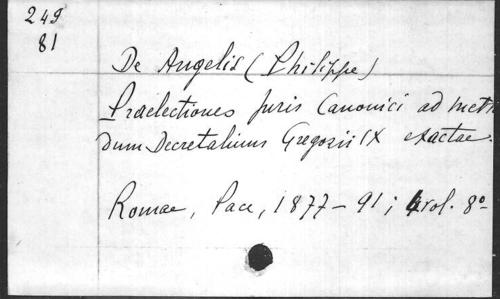 249
81
De Angelis (Philippe)
Praelectiones Juris Canonici ad meth
dum Decretalium Gregorii IX exactae.
Romae, Pace, 1877-91; 4 vol. 8º